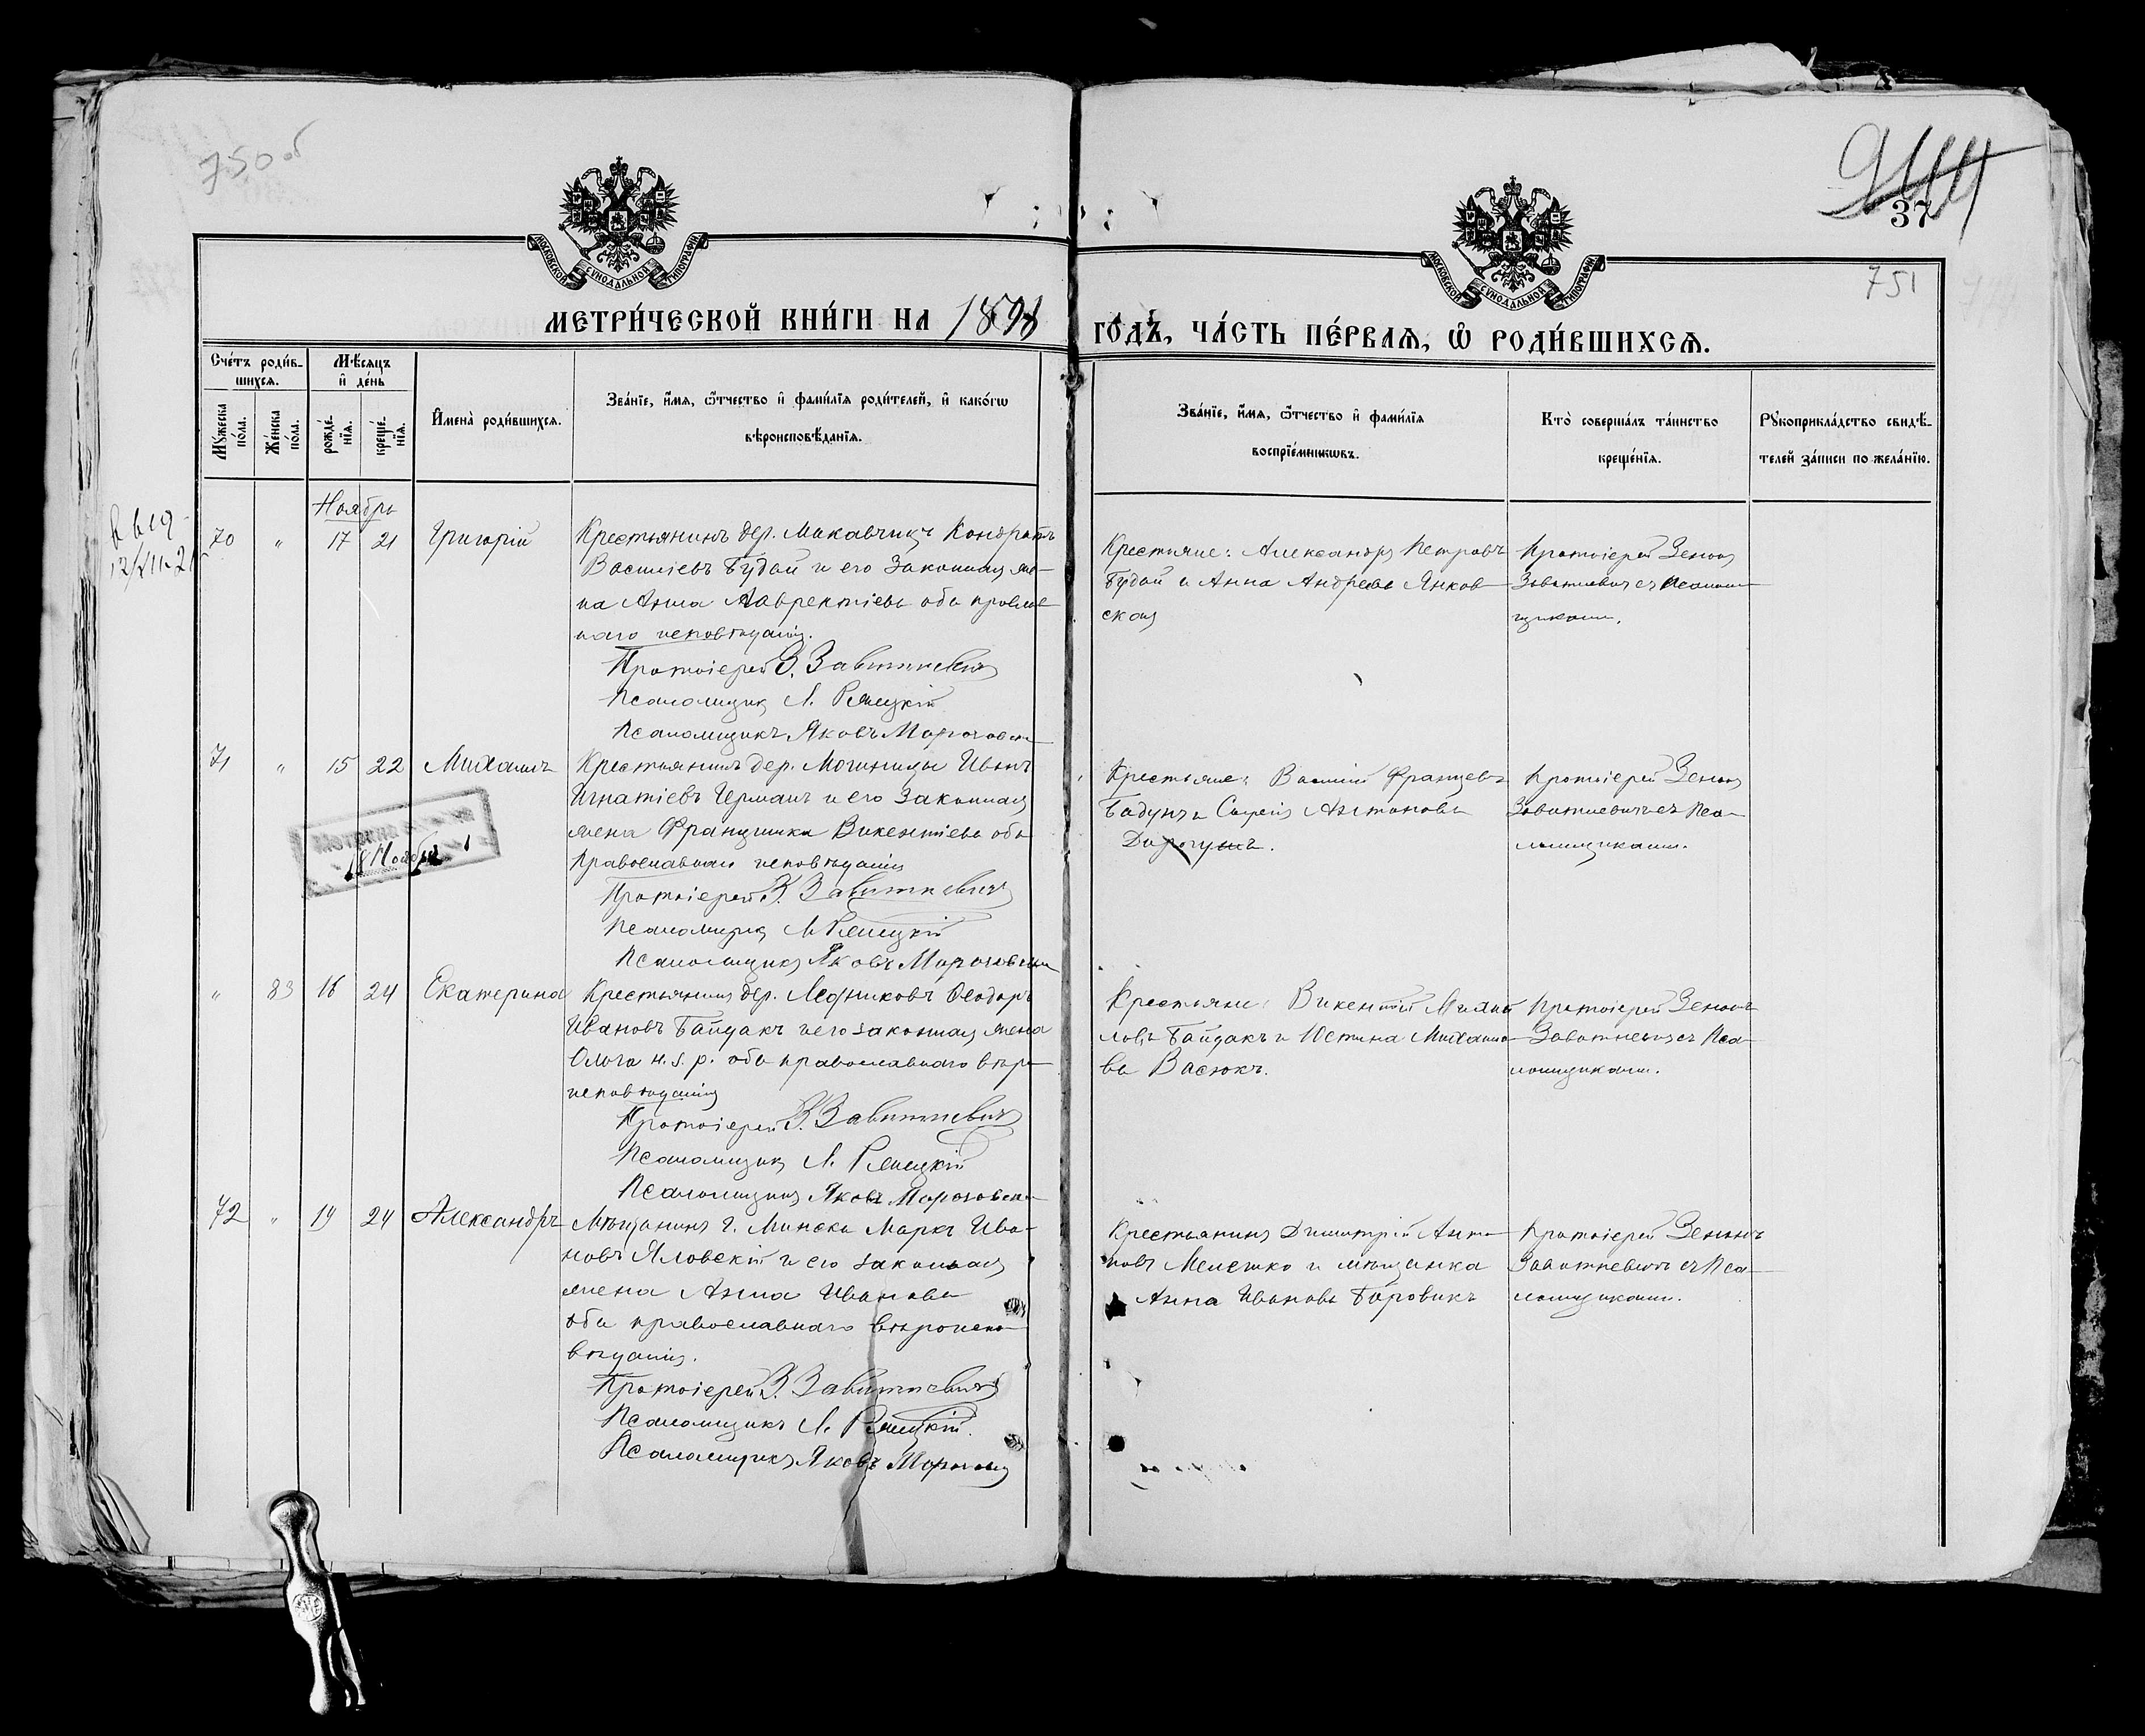 750 об
37
751
МОСКОВСКОЙ СѴНОДАЛЬНОЙ ТИПОГРАФІИ
МОСКОВСКОЙ СѴНОДАЛЬНОЙ ТИПОГРАФІИ
МЕТРИ́ЧЕСКОЙ КНИ́ГИ НА 1898
ГО́ДЪ, ЧА́СТЬ ПЕ́РВАЯ, Ѽ РОДИ́ВШИХСЯ.
Счéтъ роди́в-
шихся.
Мѣ́сяцъ
и҆ де́нь
Мꙋ́жеска
по́ла.
Же́нска
по́ла.
рожде́-
нїя.
креще́-
нїя.
И҆мена̀ роди́вшихся.
Зва́нїе, и҆́мя, ѻ҆́тчество и҆ фами́лїя роди́телей, и҆ како́гѡ
вѣроисповѣ́данїя.
Зва́нїе, и҆́мя, ѻ҆́тчество и҆ фами́лїя
воспрїе́мникѡвъ.
Кто̀ соверша́лъ та́инство
креще́нїя.
Рꙋкоприкла́дство свидѣ́-
телей за́писи по жела́нїю.
Ноябрь
70 " 17 21 Григорій
Крестьянинъ дер. Макавчицъ Кондратъ
Василіевъ Будай и его законная же-
на Анна Лаврентіева оба православ-
наго исповѣданія.
Протоіерей З. Завитневичъ
Псаломщикъ Л.
Псаломщикъ Яковъ
Крестьяне: Александръ Петровъ
Будай и Анна Андреева Янков-
ская
Протоіерей Зенонъ
Завитневичъ съ псалом-
щиками.
71 " 15 22 Михаилъ
Крестьянинъ дер. Иванъ
Игнатіевъ Германъ и его законная
жена Францишка Викентіева оба
православнаго исповѣданія
18 Ноября
Протоіерей З. Завитневичъ
Псаломщикъ Л.
Псаломщикъ Яковъ
Крестьяне: Василій Францевъ
Бадунъ и Софія Антонова
Протоіерей Зенонъ
Завитневичъ съ пса-
ломщиками.
" 83 16 24 Екатерина
Крестьянинъ дер. Ледниковъ Ѳеодоръ
Ивановъ Байдакъ и его законная жена
Ольга оба православнаго вѣро-
исповѣданія
Протоіерей З. Завитневичъ
Псаломщикъ Л.
Псаломщикъ Яковъ
Крестьяне: Викентій Михай-
ловъ Байдакъ и Юстина Михайло-
ва Васюкъ.
Протоіерей Зенонъ
Завитневичъ съ пса-
ломщиками.
72 " 19 24 Александръ
Мѣщанинъ г. Минска Маркъ Ива-
новъ Яловскій и его законная
жена Анна Иванова
оба православнаго вѣроиспо-
вѣданія.
Протоіерей З. Завитневичъ
Псаломщикъ Л.
Псаломщикъ Яковъ
Крестьянинъ Димитрій Анто-
новъ Мелешко и мѣщанка
Анна Иванова Боровикъ
Протоіерей Зенонъ
Завитневичъ съ пса-
ломщиками.